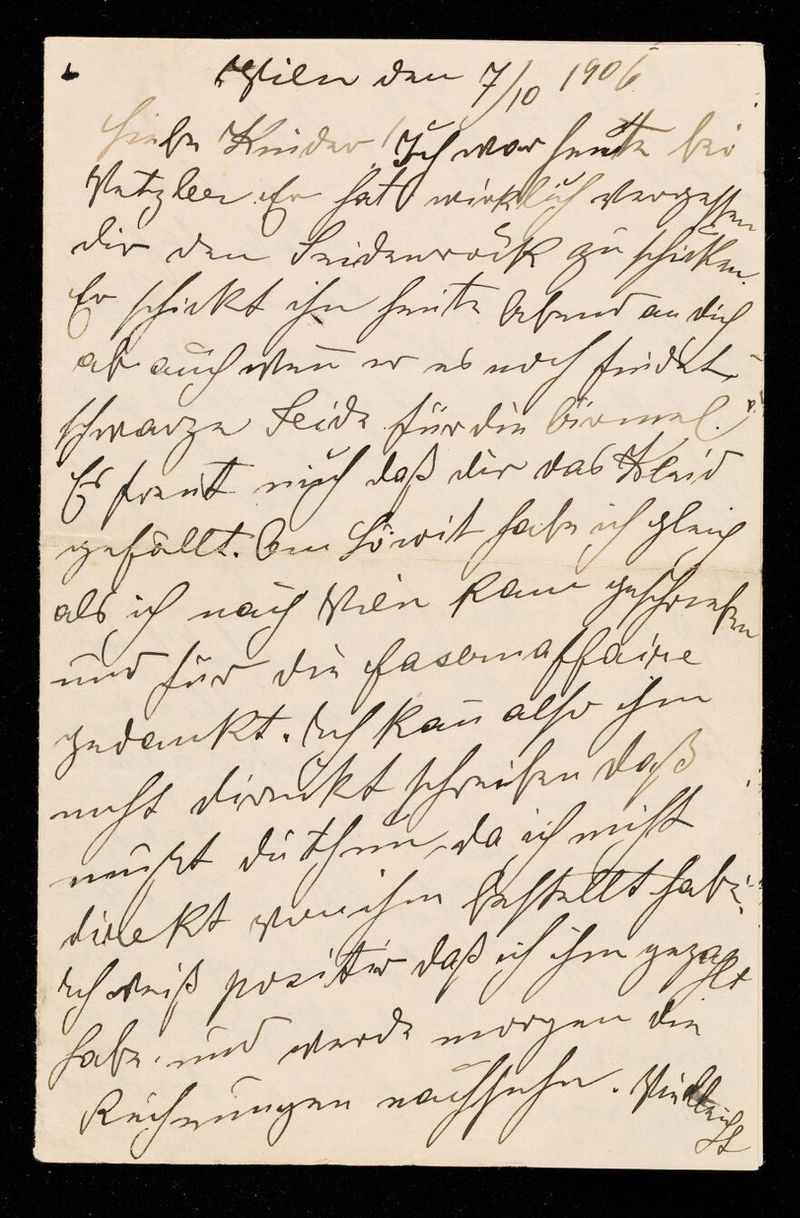 Wien den 7/10 1906
Liebe Kinder! Ich war heute bei
Er hat wirklich vergessen
dir den Seidenrock zu schicken.
Er schickt ihn heute Abend an dich
ab auch wen̄ er es noch findet,
schwarze Seide für die Ärmel.
Es freut mich daß dir das Kleid
gefällt. An Löwit habe ich gleich
als ich nach Wien kam geschrieben
und für die
gedankt. Ich kan̄ also ihm
nicht direkt schreiben daß
du thun, da ich nicht
direkt von ihm bestellt habe.
Ich weiß positiv daß ich ihm gezahlt
habe. und werde morgen die
Rechnungen nachsehn. Vielleicht